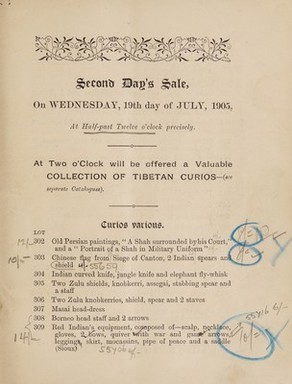 Second Day's Sale,
On WEDNESDAY, 19th day of JULY, 1905,
At Half-past Twelve o'clock precisely.
At Two o'Clock will be offered a Valuable
COLLECTION OF TIBETAN CURIOS—(see
separate Catalogue).
Curios various.
LOT
12/- 302 Old Persian paintings, "A Shah surrounded by his Court,"
and a "Portrait of a Shah in Military Uniform"
10/- 303 Chinese flag from Siege of Canton, 2 Indian spears and
shield
304 Indian curved knife, jungle knife and elephant fly-whisk
305 Two Zulu shields, knobkerri, assegai, stabbing spear and
a staff
306 Two Zulu knobkerries, shield, spear and 2 staves
307 Masai head-dress
308 Borneo head staff and 2 arrows
309 Red Indian's equipment, composed of—scalp, necklace,
gloves, 2 bows, quiver with war and game arrows,
14/- leggings, skirt, mocassins, pipe of peace and a saddle
(Sioux)